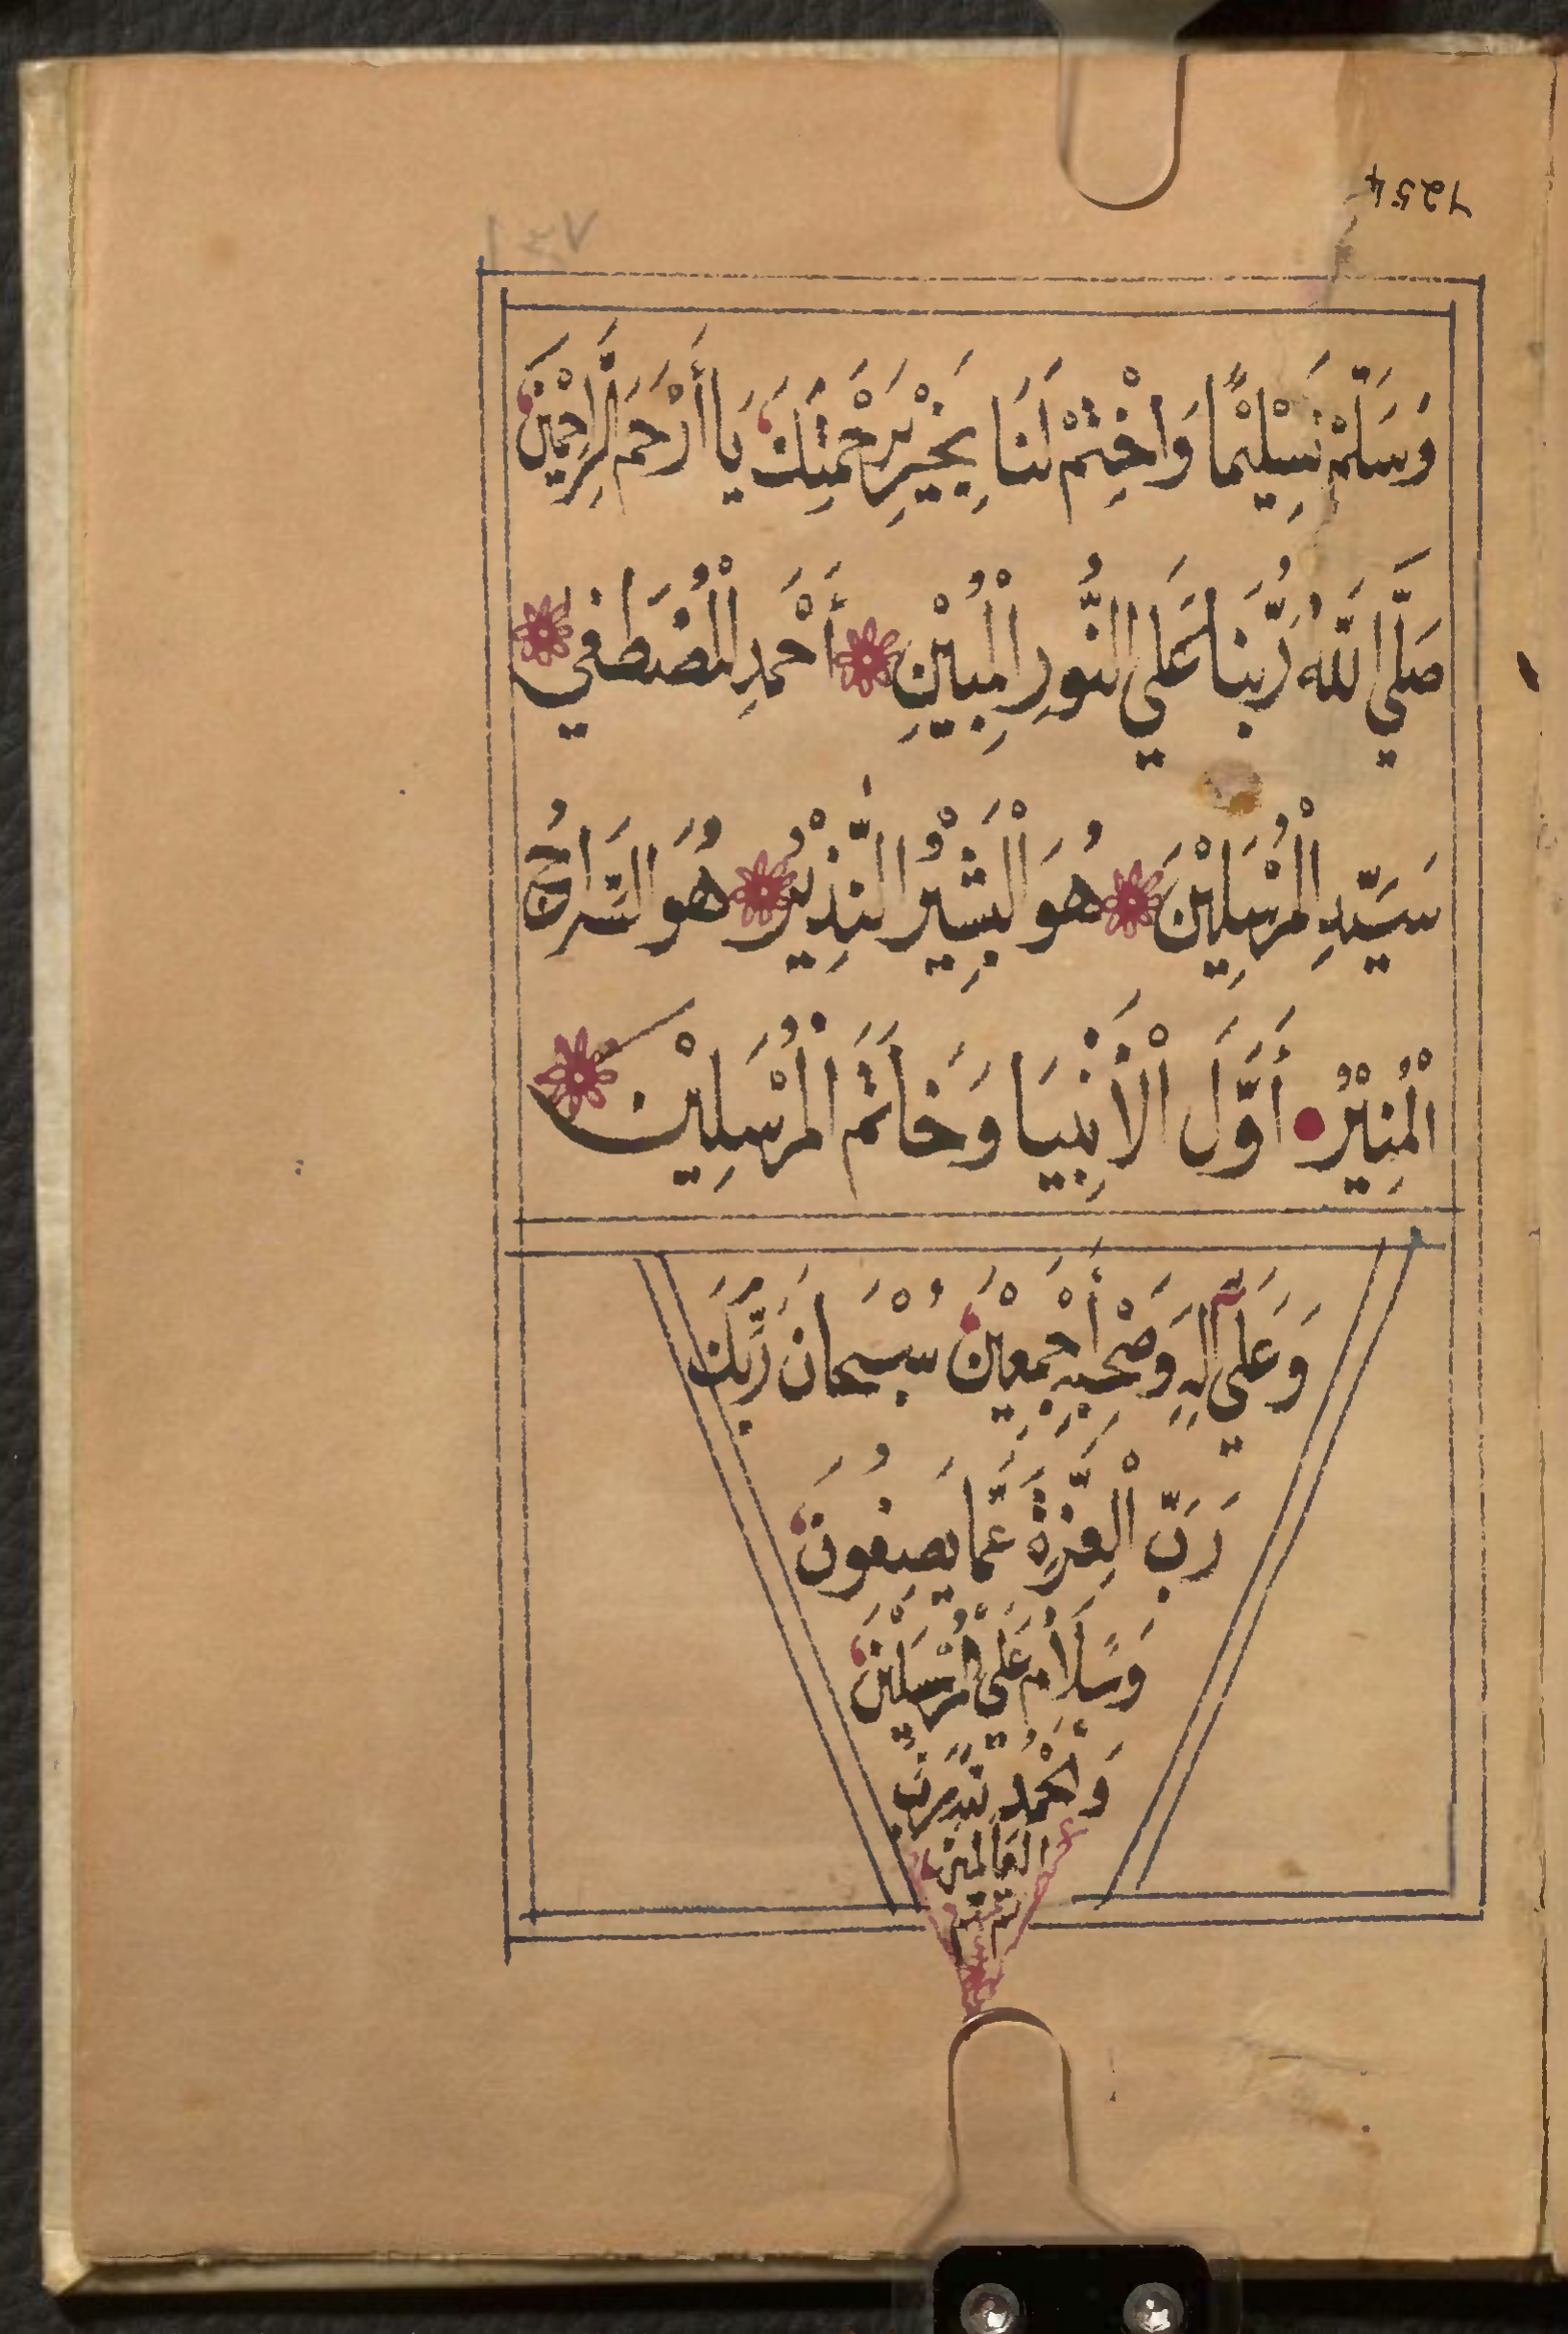 1254
١٤٧
وَسَلِّمْ تَسْلِيْمًا وَاخْتِمْ لَنَا بِخَيْرٍ بِرَحْمَتِكَ يَا أَرْحَمَ الرَّاحِمِيْنَ
صَلَّي اللّٰهُ رَبُّنَا عَلَي النُّورِ الْمُبِيْنِ أَحْمَدِ الْمُصْطَفَي
سَيِّدِ الْمُرْسَلِيْنَ هُوَ الْبَشِيْرُ النَّذِيْرُ هُوَ السِّرَاجُ
الْمُنِيْرُ أَوَّلَ الْأَنْبِيَا وَخَاتَمَ الْمُرْسَلِيْنَ
وَعَلَي آلِهِ وَصَحْبِهِ أَجْمَعِيْنَ سُبْحَانَ رَبِّكَ
رَبِّ الْعِزَّةِ عَمَّا يَصِفُونَ
وَسَلَامٌ عَلَي الْمُرْسَلِيْنَ
وَالْحَمْدُ لِلّٰهِ رَبِّ
الْعَالَمِيْنَ
تمت